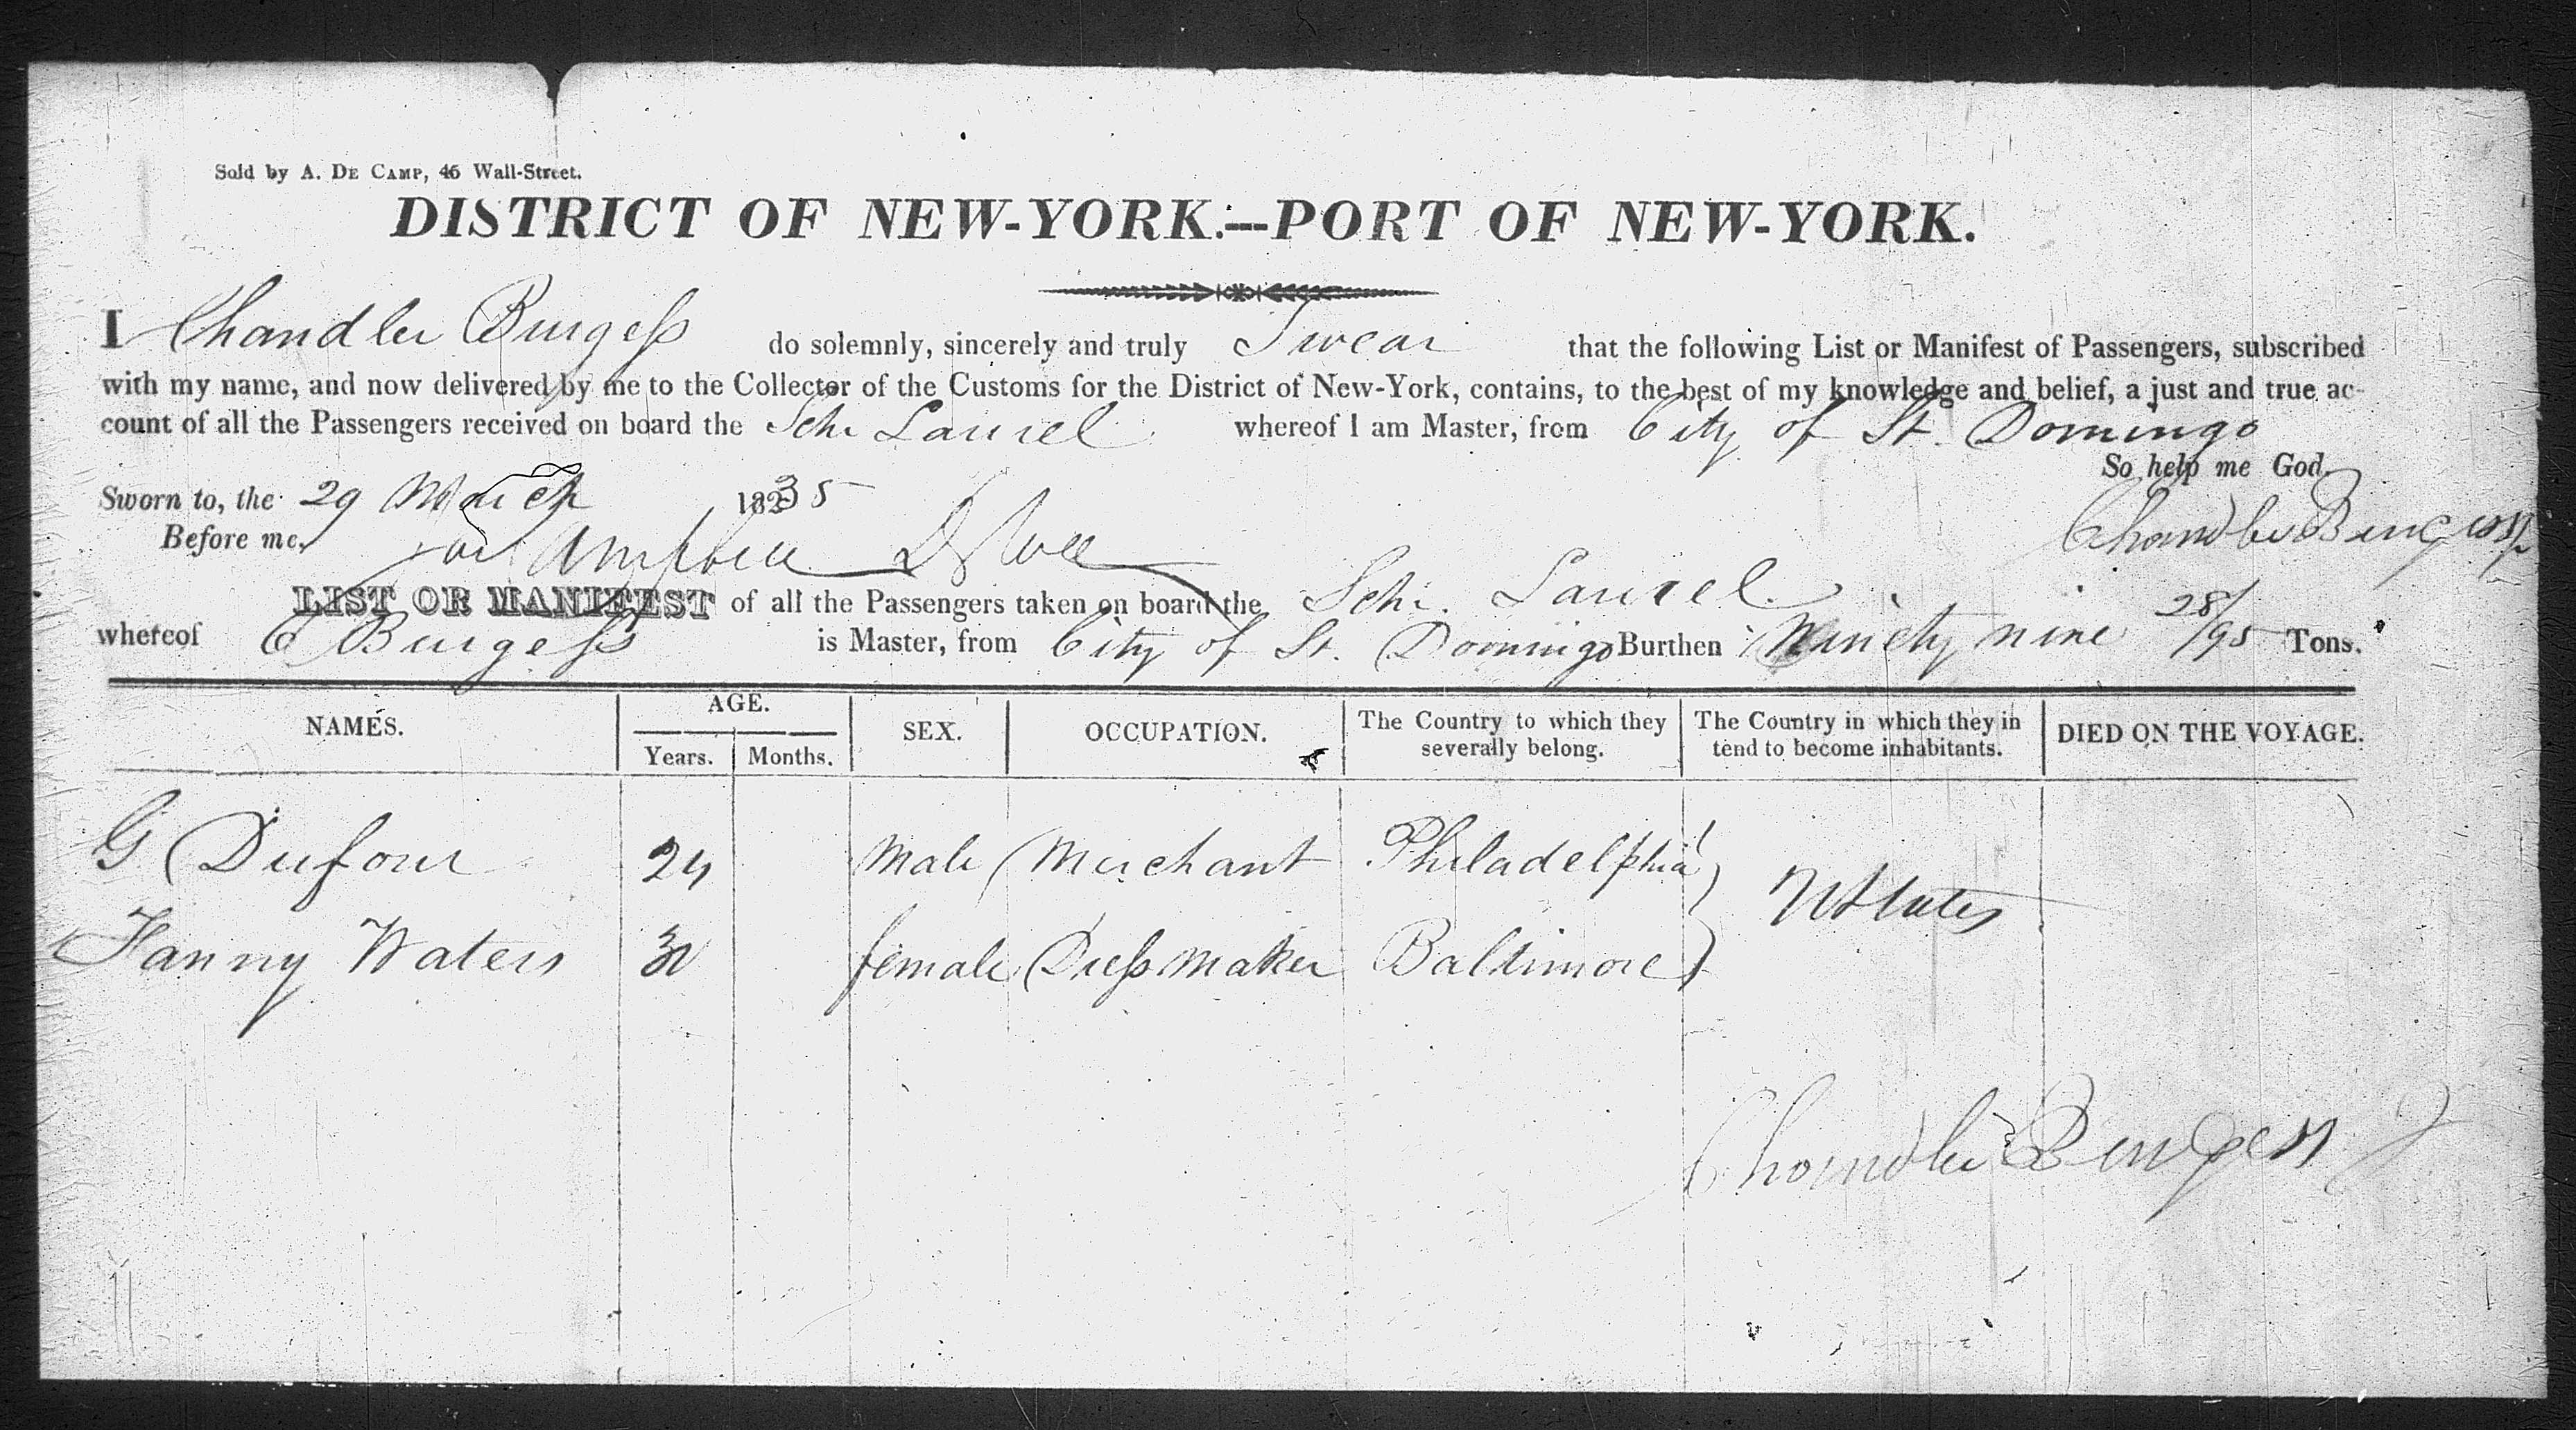 Sold by A. De Camp, 46 Wall-Street.
DISTRICT OF NEW-YORK.—PORT OF NEW-YORK.
I Chandler Burgess do solemnly, sincerely and truly Swear that the following List or Manifest of Passengers, subscribed
with my name, and now delivered by me to the Collector of the Customs for the District of New-York, contains, to the best of my knowledge and belief, a just and true ac-
count of all the Passengers received on board the Schr Laurel whereof I am Master, from City of St. Domingo
So help me God.
Sworn to, the 29 March 1835
Chandler Burgess
Before me,
LIST OR MANIFEST of all the Passengers taken on board the Schr. Laurel
whereof C Burgess is Master, from City of St. Domingo Burthen Ninety nine 28/95 Tons.
NAMES. AGE. SEX. OCCUPATION. The Country to which they severally belong. The Country in which they in tend to become inhabitants. DIED ON THE VOYAGE.
Years. Months.
G Dufour 24 Male Merchant Philadelphia
UStates
Fanny Waters 30 female Dress Maker Baltimore
Chandler Burgess